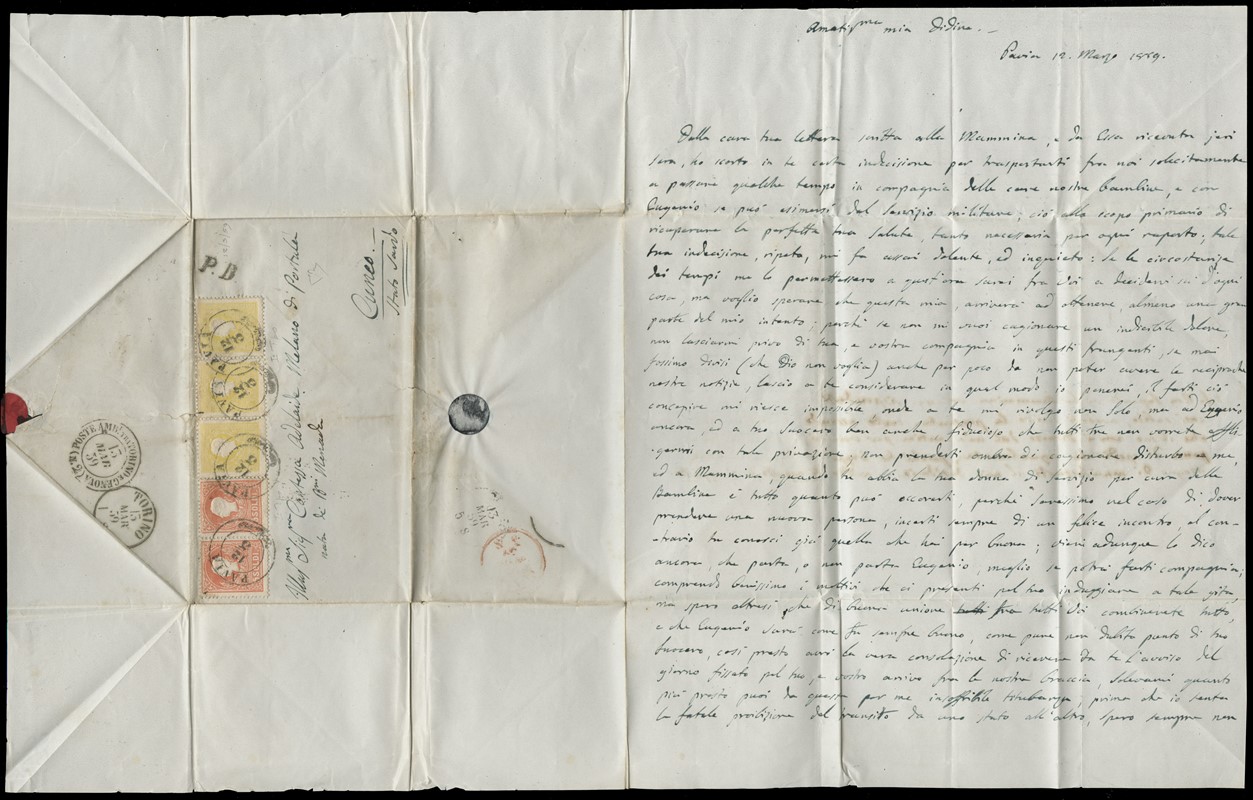 Amatis.ma mia Didina. —
Pavia 12. Marzo 1859.
Dalla cara tua lettera scritta alla Mammina, e da Essa ricevuta jeri
sera, ho scorto in te certa indecisione per trasportarti fra noi solecitamente
a passare qualche tempo in compagnia delle care nostre bambine, e con
Eugenio se può esimersi dal servizio militare; ciò allo scopo primario di
ricuperare la perfetta tua salute, tanto necessaria per ogni raporto; tale
tua indecisione, ripeto, mi fa assai dolente, ed inquieto: se le circostanze
dei tempi me lo permettessero a quest'ora sarei fra Voi a decidervi su d'ogni
cosa, ma voglio sperare che questa mia arriverà ad ottenere almeno una gran
parte del mio intento; perchè se non mi vuoi cagionare un indicibile dolore,
non lasciarmi privo di tua, e vostra compagnia in questi frangenti, se mai
fossimo divisi (che Dio non voglia) anche per poco da non poter avere le reciproche
nostre notizie, lascio a te considerare in qual modo io penerei, il farti ciò
concepire mi riesce impossibile, onde a te mi rivolgo non solo, ma ad Eugenio
ancora, ed a tuo suocero ben anche fiducioso che tutti tre non vorrete affli-
germi con tale privazione: non prenderti ombra di cagionare disturbo a me,
ed a Mammina, quando tu abbia la tua donna di servizio per cura delle
Bambine è tutto quanto può occorerti, perchè saressimo nel caso di dover
prendere una nuova persona, incerti sempre di un felice incontro, al con-
trario tu conosci già quella che hai per buona; vieni adunque lo dico
ancora, che parta, o non parta Eugenio, meglio se potrà farti compagnia;
comprendo benissimo i motivi che ci presenti pel tuo indugiare a tale gita,
ma spero altresì che di buona unione tutti fra tutti Voi combinerete tutto,
e che Eugenio sarà come fu sempre buono, come pure non dubito punto di tuo
suocero, così presto avrò la vera consolazione di ricevere da te l'avviso del
giorno fissato pel tuo, e vostro arrivo fra le nostre braccia, sollevami quanto
più presto puoi da questa per me insoffribile titubanza, prima che io senta
la fatale proibizione del transito da uno stato all'altro, spero sempre non
P.D
Cuneo.
Stato Sardo
Contessa Adelaide
nata de
PAVIA
12/3
PAVIA
12/3
PAVIA
12/3
PAVIA
12/3
15 SOLDI
5 SOLDI
TORINO
13
MAR
59
13
MAR
59